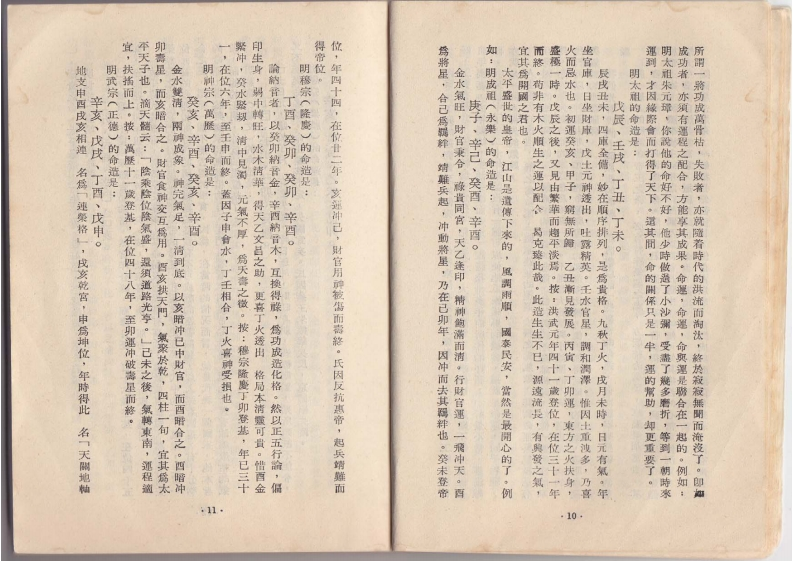 所謂一將功成萬骨枯,失敗者,亦就隨着時代的洪流而淘汰,終於寂寂無聞而淹沒了。卽如
成功者,亦須有運程之配合,方能享其成果。命運,命運,命與運是聯合在一起的。例如:
明太祖朱元璋,你說他的命好不好,他少時做過了小沙彌,受盡了幾多磨折,等到一朝時來
運到,才因緣際會而打得了天下。這其間,命的關係只是一半,運的幫助,却更重要了。
明太祖的命造是:
戊辰、壬戌、丁丑、丁未。
辰戌丑未,四庫全備,妙在順序排列,是為貴格。九秋丁火,戌月未時,日元有氣。年
坐官庫,日坐財庫,戊土元神透出,吐露精英。壬水官星,調和潤澤。惟因土重洩多,乃喜
火而忌水也。初運癸亥、甲子,窮無所歸,乙丑漸見發展。丙寅、丁卯運,東方之火扶身,
盛極一時。戊辰之後,又見由繁華而趨平淡焉。按:洪武元年四十一歲登位,在位三十一年
而終。苟非有木火順生之運以配合,曷克臻此哉。此造生生不已,源遠流長,有興發之氣,
宜其為開國之君也。
太平盛世的皇帝,江山是遺傳下來的,風調雨順,國泰民安,當然是最開心的了。例
如:明成祖(永樂)的命造是:
庚子、辛己、癸酉、辛酉。
金水氣旺,財官秉令,祿貴同宮,天乙逢印,精神飽滿而清。行財官運,一飛冲天。酉
為將星,合己為羈絆,靖難兵起,冲動將星,乃在己卯年,因冲而去其羈絆也。癸未登帝
·10·
位,年四十四,在位廿二年。亥運冲己,財官用神被傷而壽終。氏因反抗惠帝,起兵靖難而
得帝位。
明穆宗(隆慶)的命造是:
丁酉、癸卯、癸卯、辛酉。
論納音者,以癸卯納音金,辛酉納音木,互換得祿,為功成造化格。然以正五行論,偏
印生身,弱中轉旺,水木清華,得天乙文昌之助,更喜丁火透出,格局本清靈可貴。惜酉金
緊冲,癸水緊刼,清中見濁,元氣不厚,為夭壽之徵。按:穆宗隆慶丁卯登基,年已三十
一,在位六年,至壬申而終。蓋因子申會水,丁壬相合,丁火喜神受損也。
明神宗(萬歷)的命造是:
癸亥、辛酉、癸亥、辛酉。
金水雙清,兩神成象。神完氣足,一清到底。以亥暗冲已中財官,而酉暗合之。酉暗冲
卯壽星,而亥暗合之。財官食神交互為用。酉亥拱天門,氣聚於乾,四柱一旬,宜其為太
平天子也。滴天髓云:「陰乘陰位陰氣盛,還須道路光亨。」己未之後,氣轉東南,運程適
宜,扶搖而上。按:萬歷十一歲登基,在位四十八年,至卯運冲破壽星而終。
明武宗(正德)的命造是:
辛亥、戊戌、丁酉、戊申。
地支申酉戌亥相連,名為「連榮格」,戌亥乾宮,申為坤位,年時得此,名「天關地軸
·11·